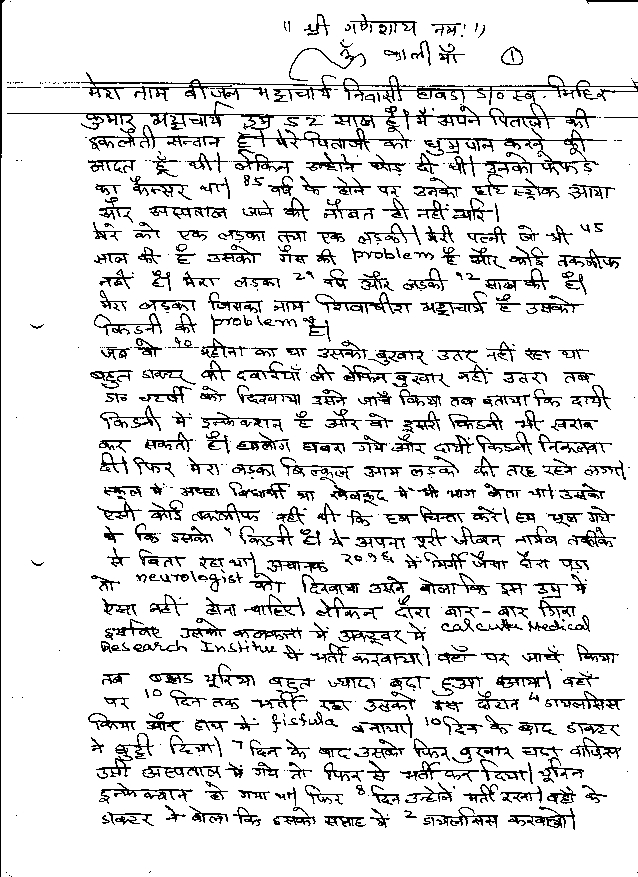 ॥ श्री गणेशाय नमः ॥
ॐ काली माँ ①
मेरा नाम बीजन भट्टाचार्य निवासी हावड़ा S/o स्व. मिहिर
कुमार भट्टाचार्य उम्र 52 साल है। मैं अपने पिताजी की
इकलौती सन्तान हूँ। मेरे पिताजी को धुम्रपान करने की
आदत थी। लेकिन उन्होंने छोड़ दी थी। उनको फेफड़े
का कैन्सर था। 85 वर्ष के होने पर उनका हार्ट स्ट्रोक आया
और अस्पताल जाने की नौबत ही नहीं आयी।
मेरे को एक लड़का तथा एक लड़की। मेरी पत्नी जो भी 45
साल की है उसको गैस की problem है और कोई तकलीफ
नहीं है। मेरा लड़का 21 वर्ष और लड़की 12 साल की है।
मेरा लड़का जिसका नाम शिवाशीश भट्टाचार्य है उसको
किडनी की problem है।
जब वो 10 महीना का था उसको बुखार उतर नहीं रहा था
बहुत डाक्टर की दवाईयाँ ली लेकिन बुखार नहीं उतरा तब
डा० चटर्जी को दिखाया उसने जाँच किया तब बताया कि दायी
किडनी में इन्फेक्शन है और वो दूसरी किडनी भी खराब
कर सकती है। हमलोग घबरा गये और दायीं किडनी निकलवा
दी। फिर मेरा लड़का बिल्कुल आम लड़को की तरह रहने लगा।
स्कूल में अच्छा विद्यार्थी था खेलकूद में भी भाग लेता था। उसको
ऐसी कोई तकलीफ नहीं थी कि हम चिन्ता करें। हम भूल गये
थे कि इसको 1 किडनी है। ये अपना पूरी जीवन नार्मल तरीके
से बिता रहा था। अचानक में मिर्गी जैसा दौरा पड़ा
तो neurologist को दिखाया उसने बोला कि इस उम्र में
ऐसा नहीं होना चाहिए। लेकिन दौरा बार-बार गिरा
इसलिए उसको कलकत्ता में अक्टूबर में Calcutta Medical
Research Institute में भर्ती करवाया। वहाँ पर जाँच किया
तब ब्लड यूरिया बहुत ज्यादा बढ़ा हुआ बताया। वहाँ
पर 10 दिन तक भर्ती रहा उसको इस दौरान 4 डायलसिस
किया और हाथ में fistula बनाया। 10 दिन के बाद डाक्टर
ने छुट्टी दिया। 7 दिन के बाद उसको फिर बुखार चढ़ा वापिस
उसी अस्पताल में गये तो फिर से भर्ती कर दिया। यूरिन
इन्फेक्शन हो गया था। फिर 8 दिन उन्होंने भर्ती रखा। वहाँ के
डाक्टर ने बोला कि इसको सप्ताह में 2 डायलसिस करवाओ।